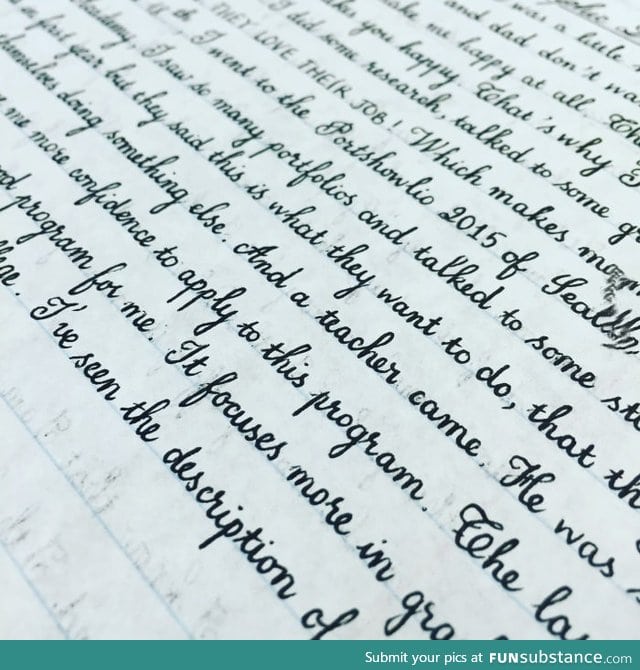 was a little
and dad don't
me happy at all.
you happy. That's why I
I did some research, talked to some
THEY LOVE THEIR JOB! Which makes
I went to the Portshowlio 2015 of
I saw so many portfolios and talked to some
first year but they said this is what they want to do, that
themselves doing something else. And a teacher came. He was
me more confidence to apply to this program. The
program for me. It focuses more in
I've seen the description of
Submit your pics at FUNsubstance.com